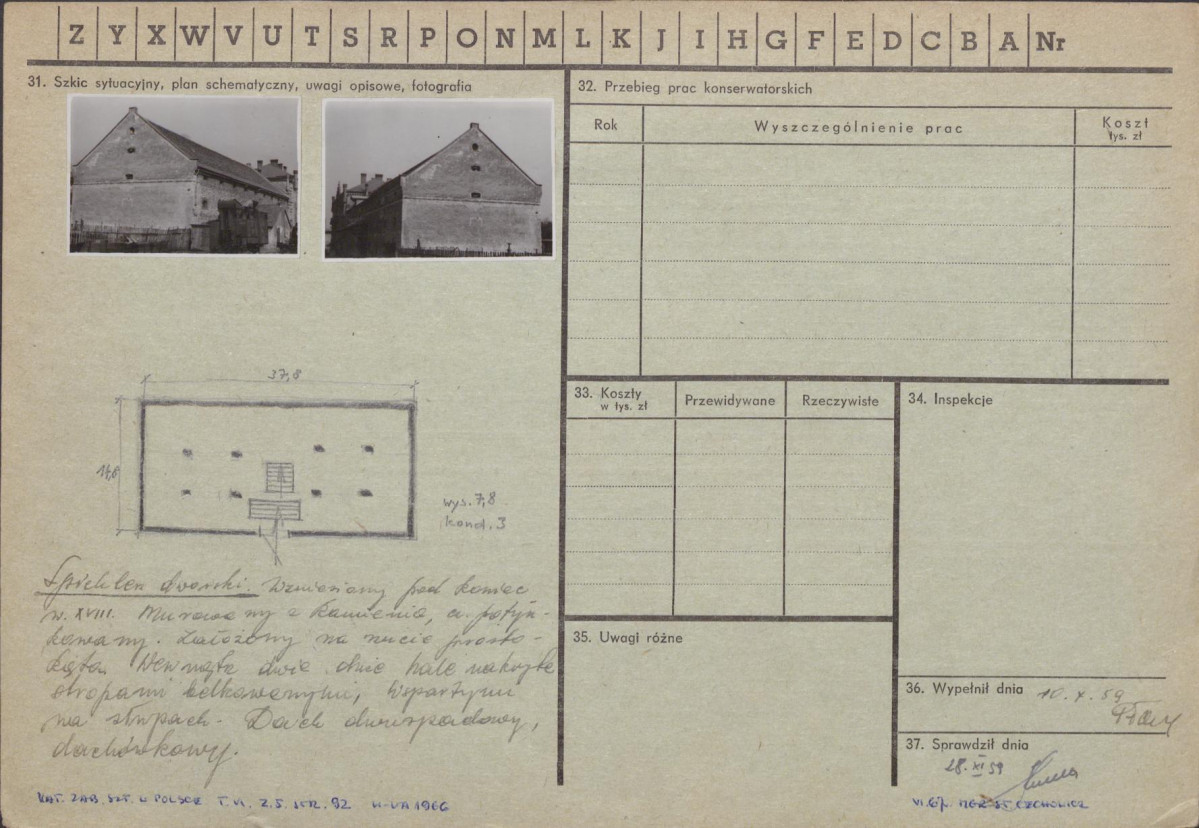 Z Y X W V U T S R P O N M L K J I H G F E D C B A Nr
31. Szkic sytuacyjny, plan schematyczny, uwagi opisowe, fotografia
37,8
14,6
wys. 7,8
kond. 3
Spichlerz dworski. Wzniesiony pod koniec
w. XVIII. Murowany z kamienia, otyn-
kowany. Założony na rzucie prosto-
kąta. Wewnątrz dwie hale nakryte
stropami belkowanymi, wspartymi
na słupach. Dach dwuspadowy,
dachówkowy.
KAT. ZAB. SZT. W POLSCE T. VI. Z. 5. STR. 92 W-WA 1966
32. Przebieg prac konserwatorskich
Rok Wyszczególnienie prac Koszt
tys. zł
33. Koszty
w tys. zł
Przewidywane Rzeczywiste
34. Inspekcje
35. Uwagi różne
36. Wypełnił dnia 10. X. 59
37. Sprawdził dnia
28. XI 59
VI. 67. MGR ST. CZECHOWICZ